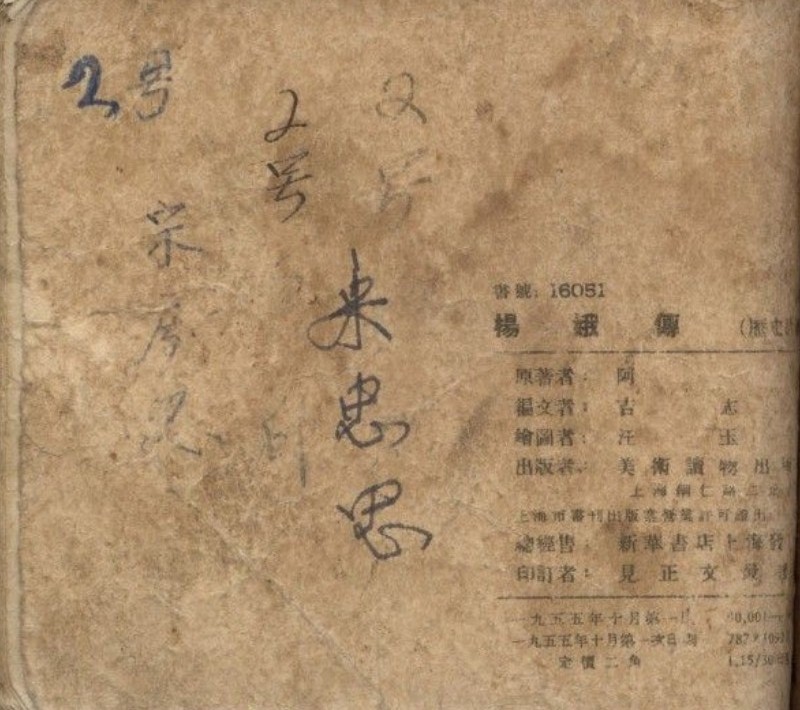 2号
2号
2号
来忠思
書號：16051
楊娥傳（歷史
原著者：阿
編文者：古 志
繪圖者：汪 玉
出版者：美術讀物出
上海銅仁路
上海市書刊出版業營業許可證出
總經售：新華書店上海發
印訂者：見正文最
一九五五年十月第一
一九五五年十月第一次印刷 787×109
定價二角 1.15/30